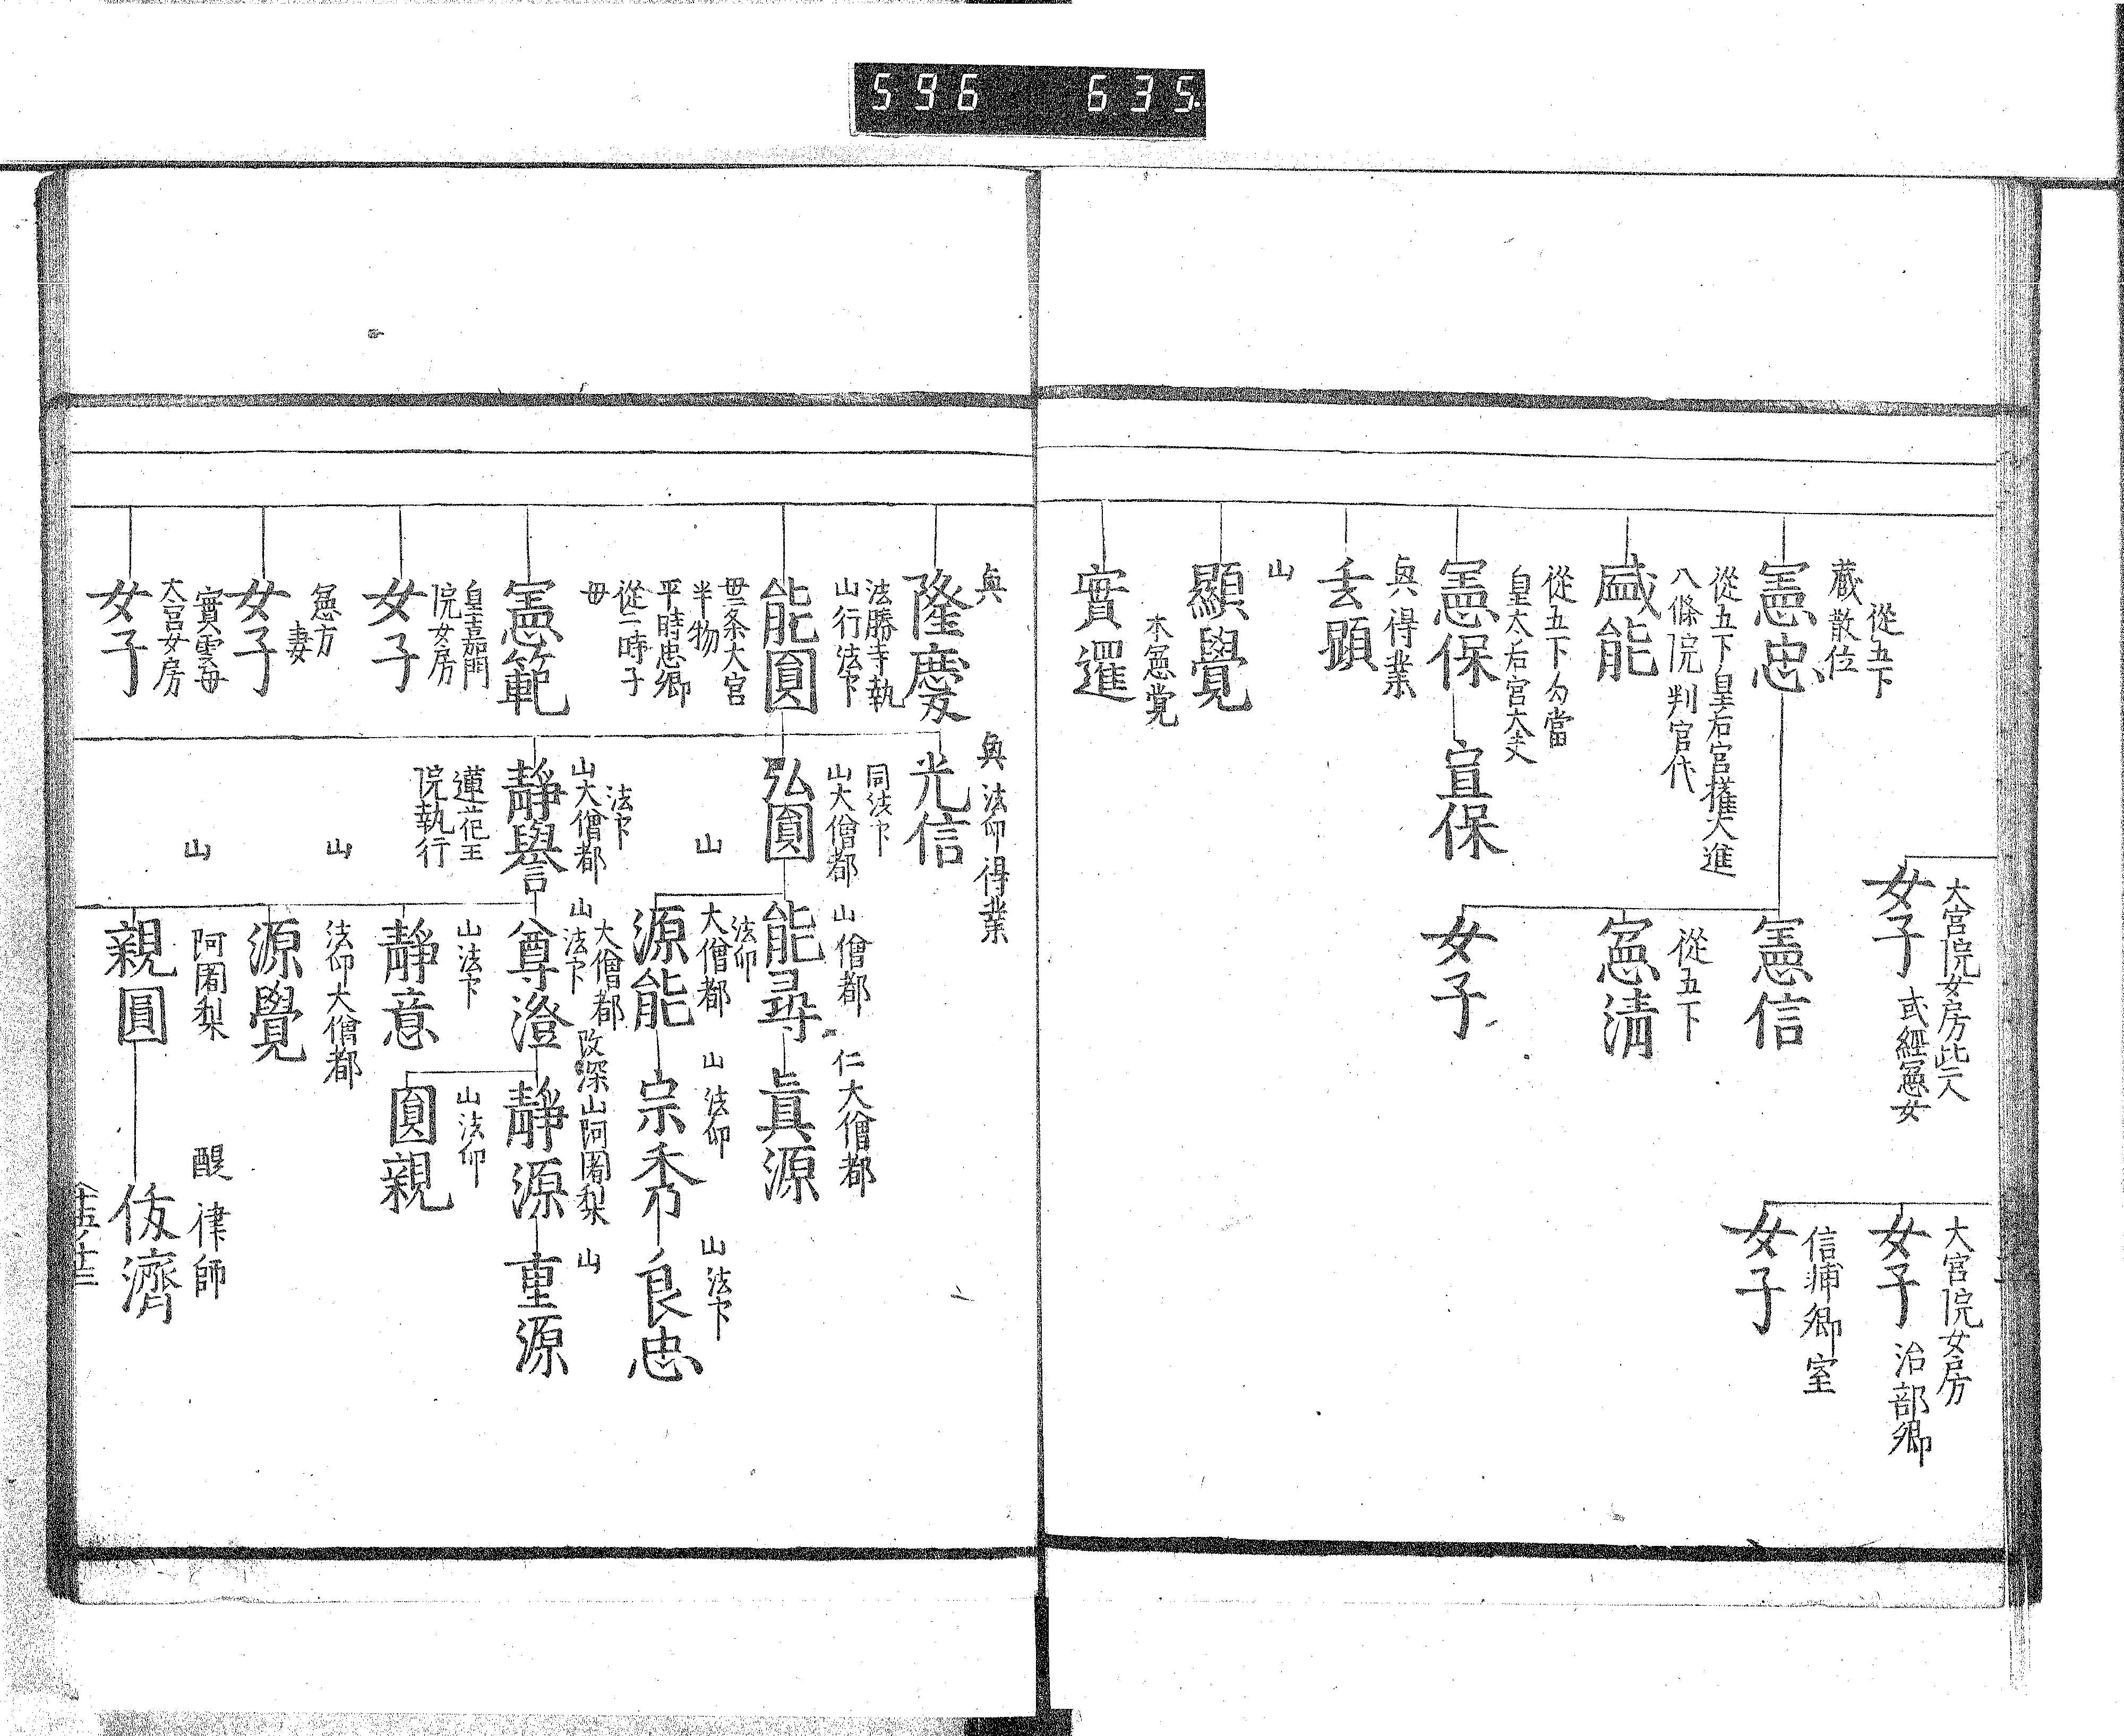 596 635
大宮院女房此一人
女子
或経憲女
大宮院女房
女子
治部卿
信輔卿室
女子
従五下
蔵散位
憲忠
憲信
従五下
憲清
女子
従五下皇后宮権大進
八條院判官代
盛能
従五下勾當
皇太后宮大夫
憲保
宣保
興得業
玄顕
山
顯覺
本憲覚
實暹
興
隆慶
興法印得業
光信
法勝寺執
山行法下
能圓
同法下
山大僧都
弘圓
山僧都
能尋
仁大僧都
眞源
山
法印
大僧都
源能
山法印
宗秀
山法下
良忠
母二条大宮
半物
平時忠卿
従二時子
母
憲範
法下
山大僧都
靜譽
蓮花王
院執行
大僧都
山法下
改深
尊澄
山阿闍梨
靜源
山
重源
山法下
靜意
山法印
圓親
皇嘉門
院女房
女子
憲方
妻
女子
山
法印大僧都
源覺
實雲母
大宮女房
女子
山
阿闍梨
親圓
醍律師
俊濟